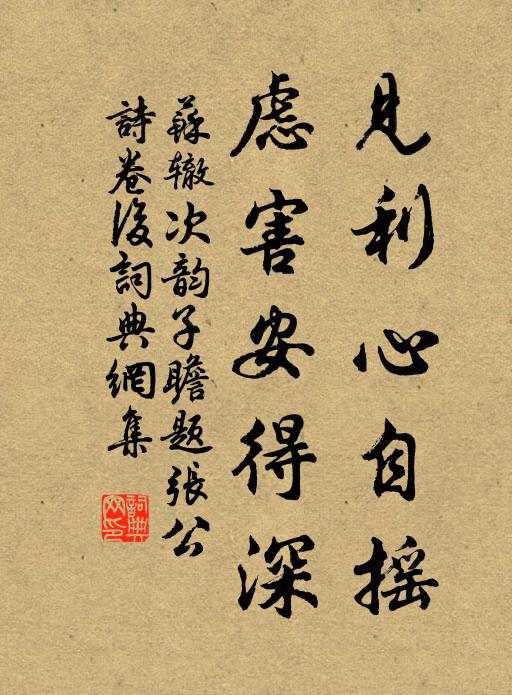 見利心自摇
慮害安得深
蘇辙次韵子瞻題張公
詩卷後詞典網集
詞典
网印